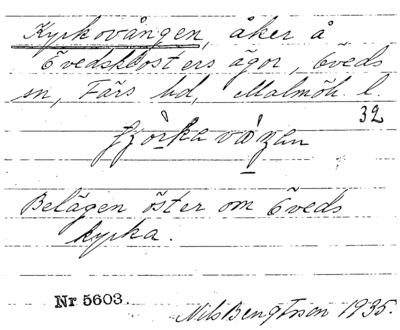 Kyrkovången, åker å
Övedsklosters ägor, Öveds
sn, Färs hd, Malmöh. l.
32
Belägen öster om Öveds
kyrka.
Nr 5603.
Nils Bengtsson 1935.